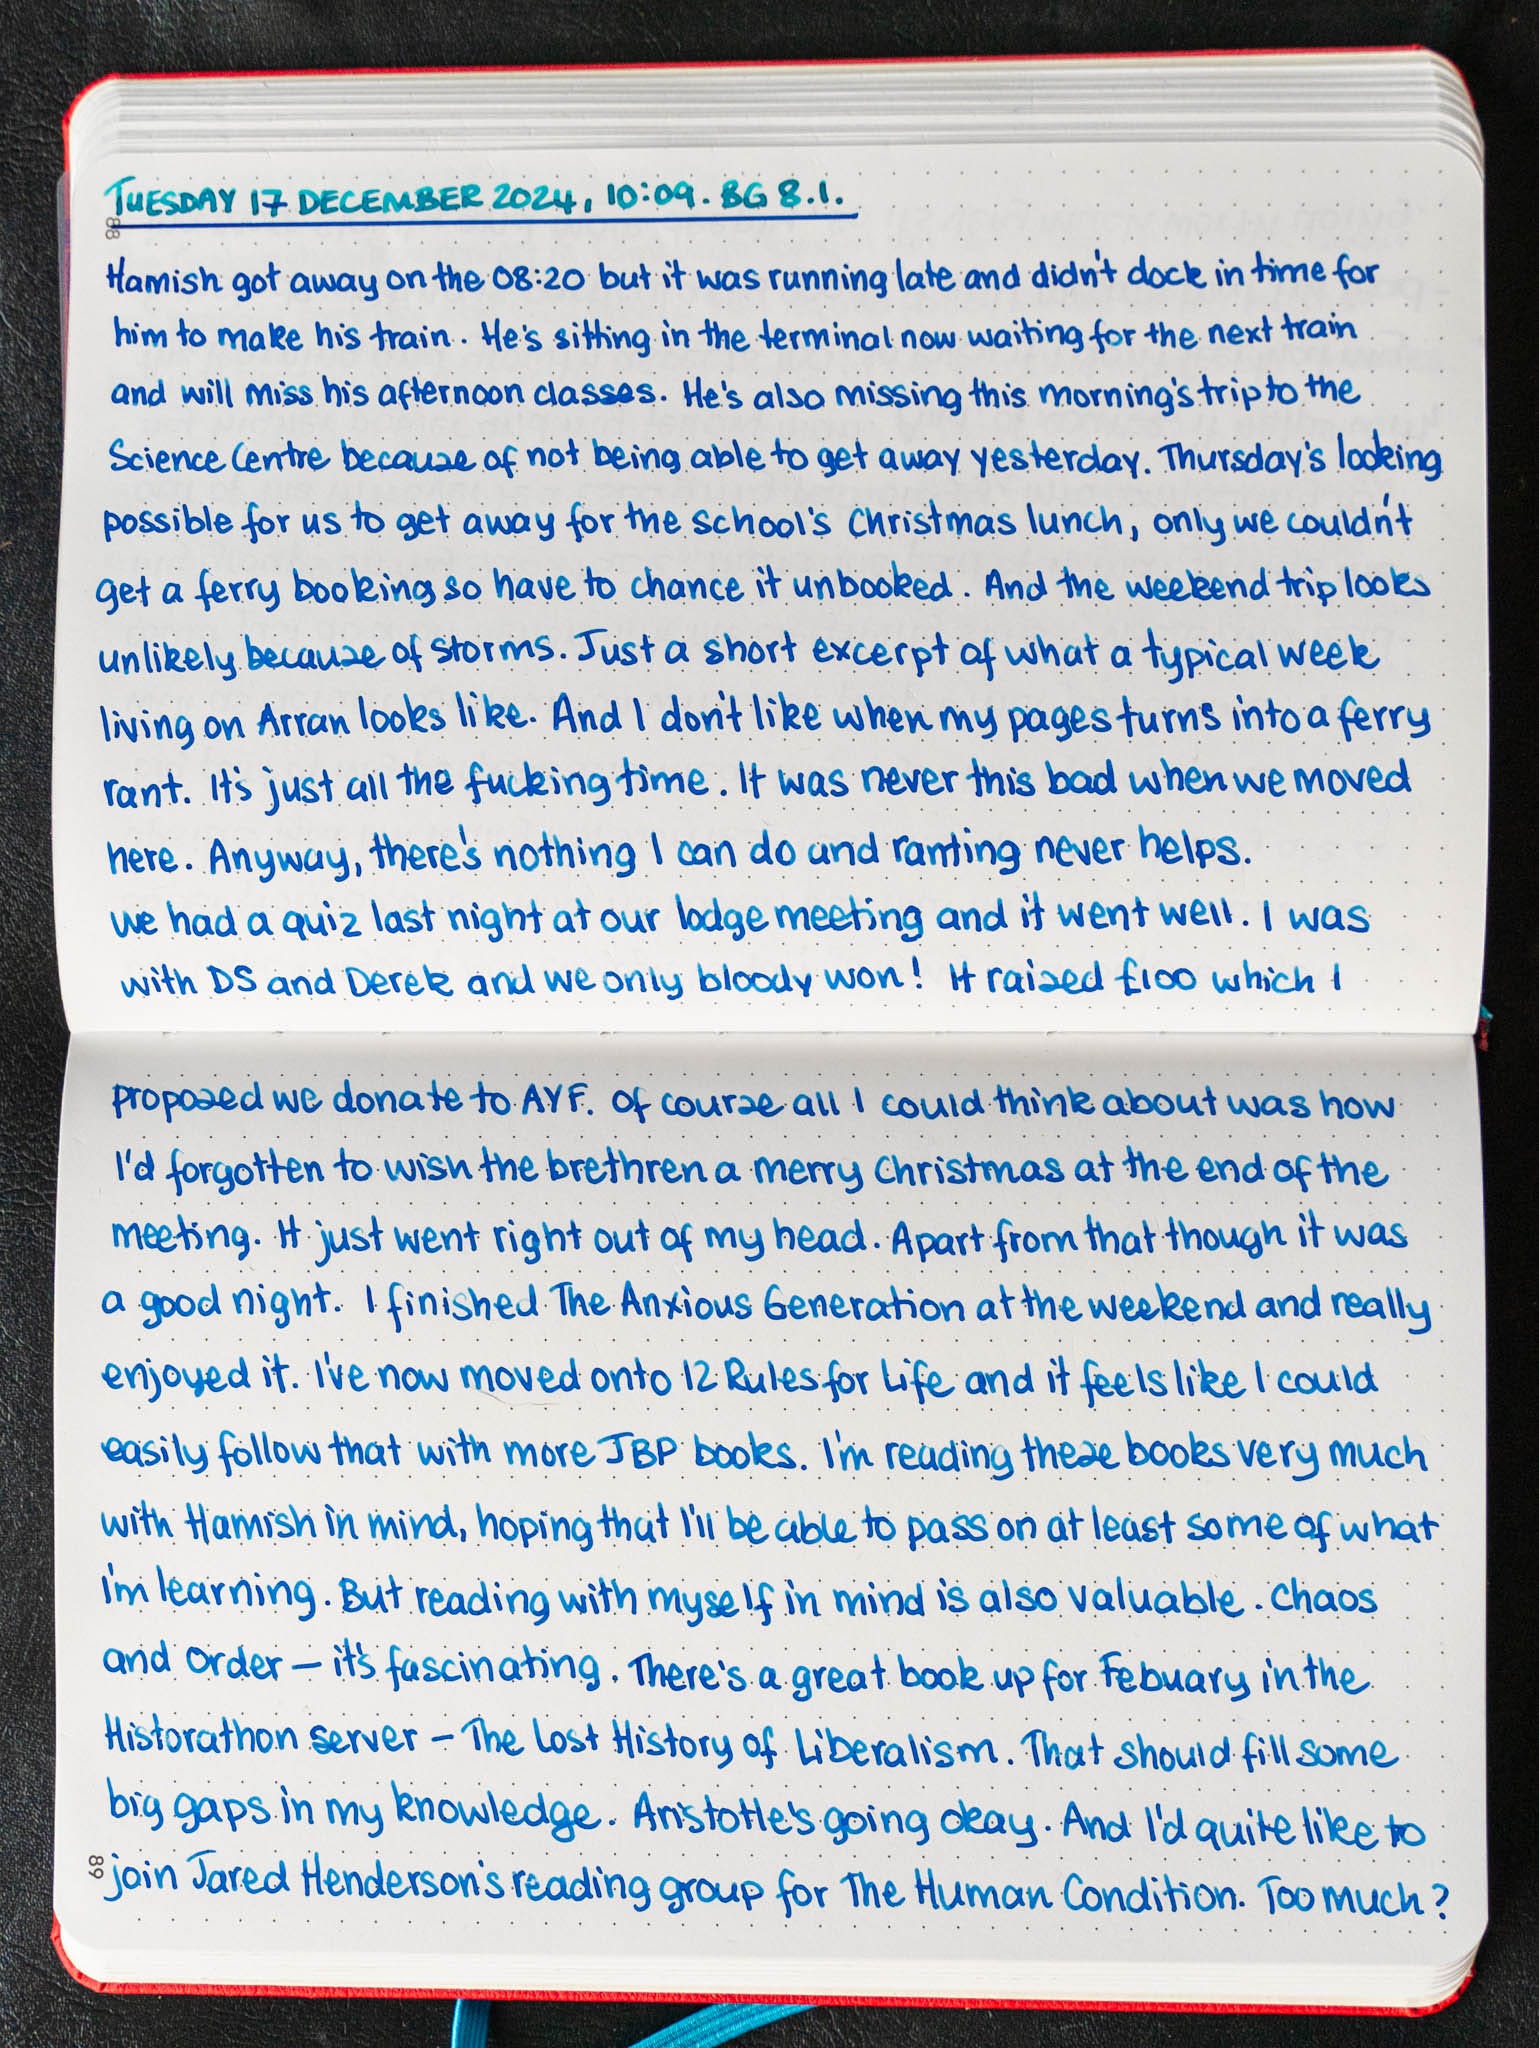 TUESDAY 17 DECEMBER 2024, 10:09. BG 8.1.
88
Hamish got away on the 08:20 but it was running late and didn't dock in time for
him to make his train. He's sitting in the terminal now waiting for the next train
and will miss his afternoon classes. He's also missing this morning's trip to the
Science Centre because of not being able to get away yesterday. Thursday's looking
possible for us to get away for the school's Christmas lunch, only we couldn't
get a ferry booking so have to chance it unbooked. And the weekend trip looks
unlikely because of storms. Just a short excerpt of what a typical week
living on Arran looks like. And I don't like when my pages turns into a ferry
rant. It's just all the fucking time. It was never this bad when we moved
here. Anyway, there's nothing I can do and ranting never helps.
We had a quiz last night at our lodge meeting and it went well. I was
with DS and Derek and we only bloody won! It raised £100 which I
proposed we donate to AYF. Of course all I could think about was how
I'd forgotten to wish the brethren a merry Christmas at the end of the
meeting. It just went right out of my head. Apart from that though it was
a good night. I finished The Anxious Generation at the weekend and really
enjoyed it. I've now moved onto 12 Rules for Life and it feels like I could
easily follow that with more JBP books. I'm reading these books very much
with Hamish in mind, hoping that I'll be able to pass on at least some of what
I'm learning. But reading with myself in mind is also valuable. Chaos
and Order – it's fascinating. There's a great book up for Febuary in the
Historathon server – The Lost History of Liberalism. That should fill some
big gaps in my knowledge. Aristotle's going okay. And I'd quite like to
join Jared Henderson's reading group for The Human Condition. Too much?
89